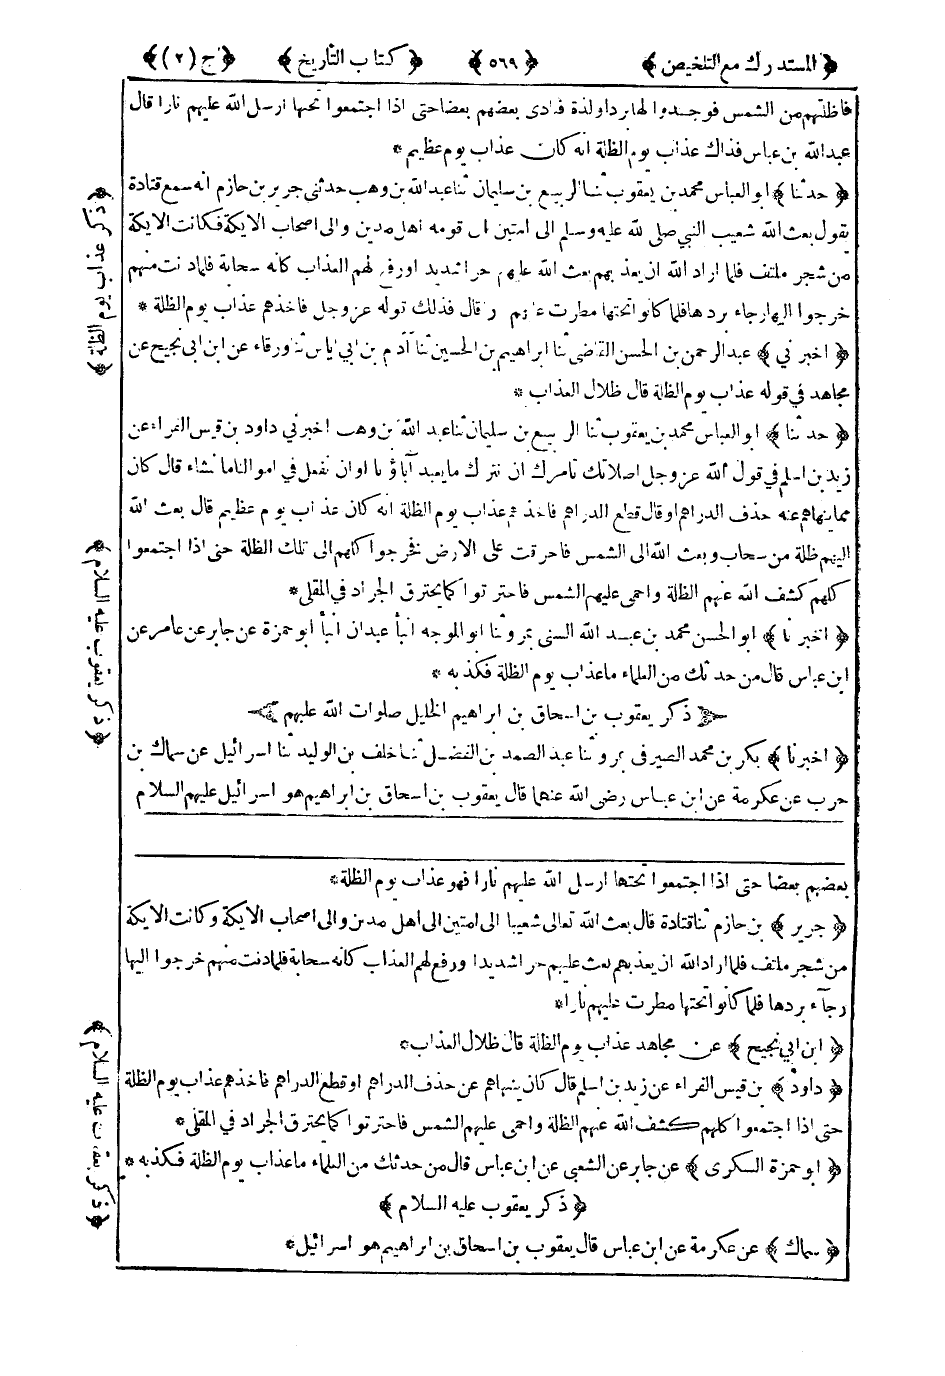 ﴿ المستدرك مع التلخيص ﴾ ﴿ ٥٦٩ ﴾ ﴿ كتاب التأريخ ﴾ ﴿ ج (٢) ﴾
فاظلتهم من الشمس فوجدوا لها بردا ولذة فنادى بعضهم بعضا حتى اذا اجتمعوا تحتها ارسل الله عليهم نارا قال
عبد الله بن عباس فذاك عذاب يوم الظلة انه كان عذاب يوم عظيم *
﴿ حدثنا ﴾ ابو العباس محمد بن يعقوب ثنا الربيع بن سليمان ثنا عبد الله بن وهب حدثنى جرير بن حازم انه سمع قتادة
يقول بعث الله شعيب النبي صلى لله عليه وسلم الى امتين الى قومه اهل مدين والى اصحاب الايكة فكانت الايكة
من شجر ملتف فلما اراد الله ان يعذبهم بعث الله عليهم حرا شديدا ورفع لهم العذاب كانه سحابة فلما دنت منهم
خرجوا اليها رجاء بردها فلما كانوا تحتها مطرت عليهم قال فذلك قوله عز وجل فاخذهم عذاب يوم الظلة *
﴿ اخبرني ﴾ عبد الرحمن بن الحسن القاضى ثنا ابراهيم بن الحسين ثنا آدم بن ابي اياس ثنا ورقاء عن ابن ابى نجيح عن
مجاهد في قوله عذاب يوم الظلة قال ظلال العذاب *
﴿ حدثنا ﴾ ابو العباس محمد بن يعقوب ثنا الربيع بن سليمان ثنا عبد الله بن وهب اخبرني داود بن قيس الفراء عن
زيد بن اسلم في قول الله عز وجل اصلاتك تامرك ان نترك ما يعبد آباؤنا او ان نفعل في اموالنا ما نشاء قال كان
مما ينهاهم عنه حذف الدراهم او قال قطع الدراهم فاخذهم عذاب يوم الظلة انه كان عذاب يوم عظيم قال بعث الله
اليهم ظلة من سحاب وبعث الله الى الشمس فاحرقت على الارض فخرجوا كلهم الى تلك الظلة حتى اذا اجتمعوا
كلهم كشف الله عنهم الظلة واحمى عليهم الشمس فاحترقوا كما يحترق الجراد في المقلى *
﴿ اخبرنا ﴾ ابو الحسن محمد بن عبد الله السنى بمرو ثنا ابو الموجه انبأ عبدان انبأ ابو حمزة عن جابر عن عامر عن
ابن عباس قال من حدثك من العلماء ما عذاب يوم الظلة فكذبه *
ذكر يعقوب بن اسحاق بن ابراهيم الخليل صلوات الله عليهم
﴿ اخبرنا ﴾ بكر بن محمد الصيرفى بمرو ثنا عبد الصمد بن الفضل ثنا خلف بن الوليد ثنا اسرائيل عن سماك بن
حرب عن عكرمة عن ابن عباس رضى الله عنهما قال يعقوب بن اسحاق بن ابراهيم هو اسرائيل عليهم السلام
بعضهم بعضا حتى اذا اجتمعوا تحتها ارسل الله عليهم نارا فهو عذاب يوم الظلة *
﴿ جرير ﴾ بن حازم ثنا قتادة قال بعث الله تعالى شعيبا الى امتين الى اهل مدين والى اصحاب الايكة وكانت الايكة
من شجر ملتف فلما اراد الله ان يعذبهم بعث عليهم حرا شديدا ورفع لهم العذاب كانه سحابة فلما دنت منهم خرجوا اليها
رجآء بردها فلما كانوا تحتها مطرت عليهم نارا *
﴿ ابن ابي نجيح ﴾ عن مجاهد عذاب يوم الظلة قال ظلال العذاب *
﴿ داود ﴾ بن قيس الفراء عن زيد بن اسلم قال كان ينهاهم عن حذف الدراهم او قطع الدراهم فاخذهم عذاب يوم الظلة
حتى اذا اجتمعوا كلهم كشف الله عنهم الظلة واحمى عليهم الشمس فاحترقوا كما يحترق الجراد في المقلى *
﴿ ابو حمزة السكرى ﴾ عن جابر عن الشعبى عن ابن عباس قال من حدثك من العلماء ما عذاب يوم الظلة فكذبه *
﴿ ذكر يعقوب عليه السلام ﴾
﴿ سماك ﴾ عن عكرمة عن ابن عباس قال يعقوب بن اسحاق بن ابراهيم هو اسرائيل *
﴿ ذكر عذاب يوم الظلة ﴾
﴿ ذكر يعقوب عليه السلام ﴾
﴿ ذكر يعقوب عليه السلام ﴾